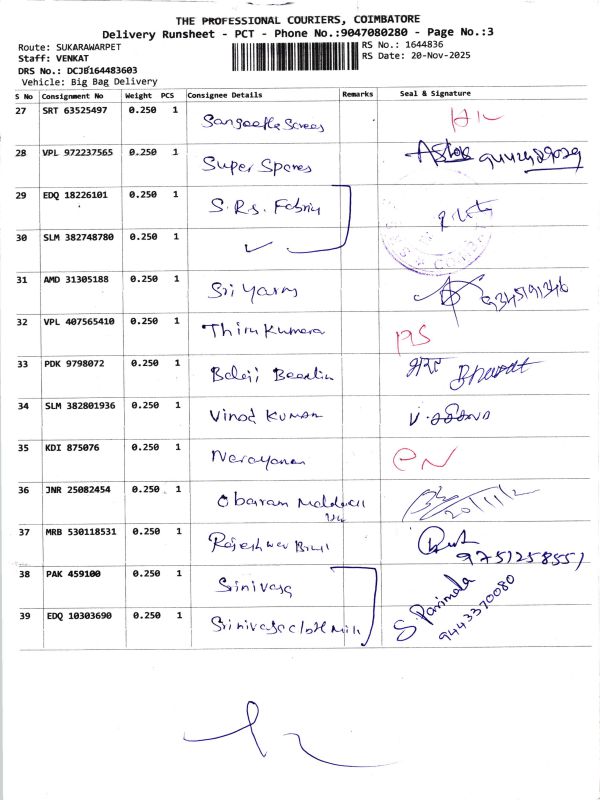 THE PROFESSIONAL COURIERS, COIMBATORE
Delivery Runsheet - PCT - Phone No.:9047080280 - Page No.:3
Route: SUKARAWARPET
Staff: VENKAT
DRS No.: DCJB164483603
Vehicle: Big Bag Delivery
RS No.: 1644836
RS Date: 20-Nov-2025
S No Consignment No Weight PCS Consignee Details Remarks Seal & Signature
27 SRT 63525497 0.250 1 Sangeetha Screes
28 VPL 972237565 0.250 1 Super Spares Ashok
29 EDQ 18226101 0.250 1 S.R.S. Fabric
30 SLM 382748780 0.250 1 ✓
31 AMD 31305188 0.250 1 Sri Yarns 9345191346
32 VPL 407565410 0.250 1 Thiru Kumara
33 PDK 9798072 0.250 1 Balaji Bharat
34 SLM 382801936 0.250 1 Vinod Kumar
35 KDI 875076 0.250 1 Narayanan EN
36 JNR 25082454 0.250 1 Obaram 20/11/2
37 MRB 530118531 0.250 1 Rajeshwar 9751258551
38 PAK 459100 0.250 1 Srinivasa S. Parimala
39 EDQ 10303690 0.250 1 Srinivasa cloth Mills 9443370080